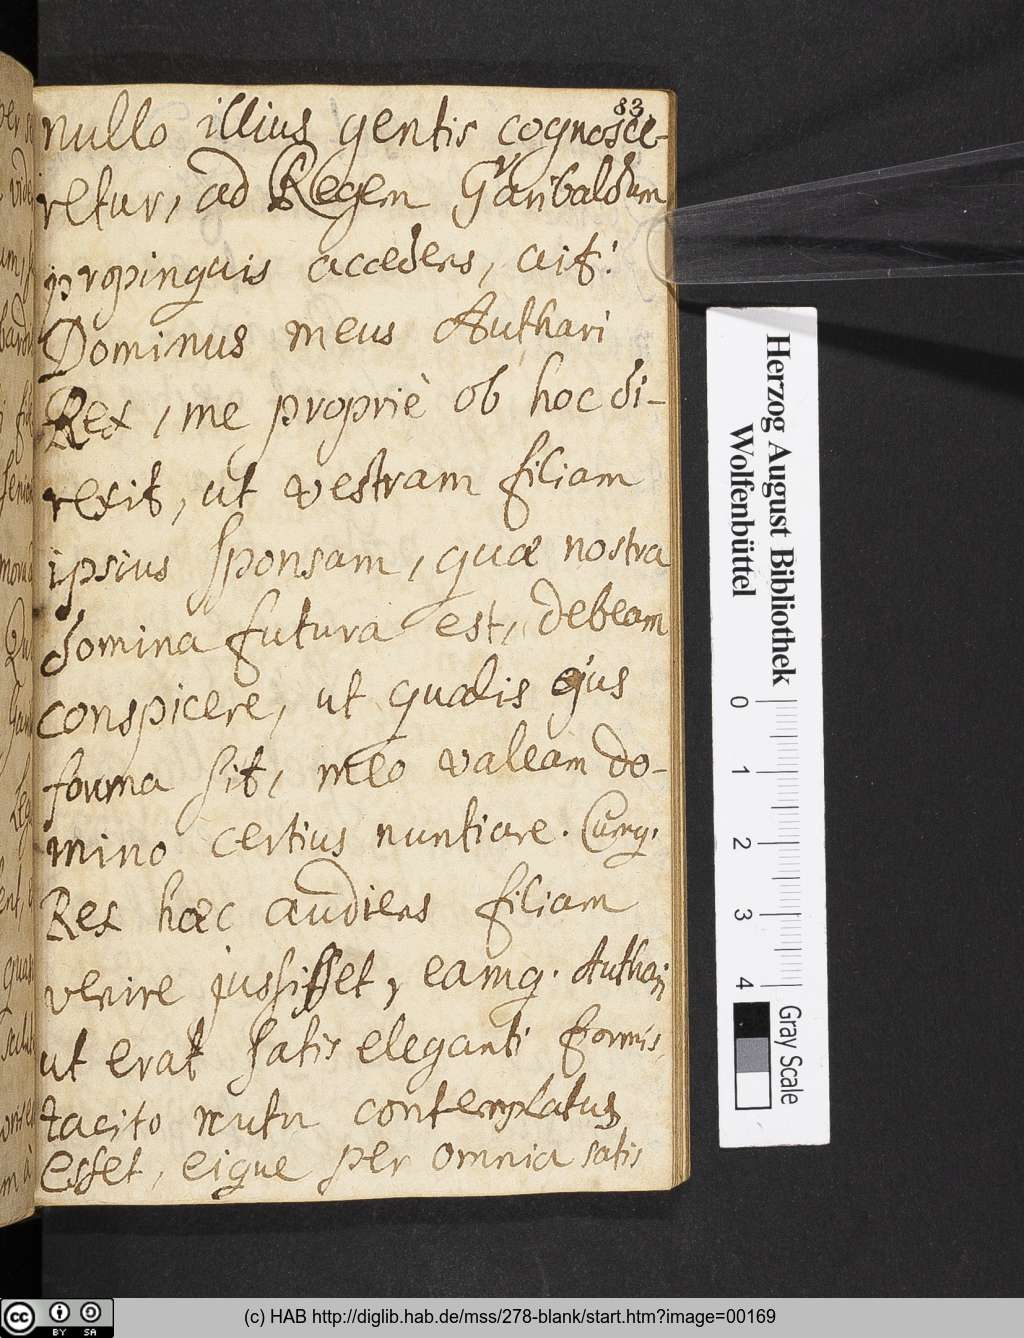 83.
nullo illius gentis cognosce-
retur, ad Regem Garibaldum
propinquis accedens, ait:
Dominus meus Authari
Rex, me propriè ob hoc di-
rexit, ut vestram filiam
ipsius sponsam, quæ nostra
domina futura est, debeam
conspicere, ut qualis ejus
forma sit, meo valeam do-
mino certius nuntiare. Cumq.
Rex hæc audiens filiam
venire jussisset, eamq. Authari
ut erat satis eleganti formis,
tacito nutu contemplatus
esset, eique per omnia satis
Herzog August Bibliothek
Wolfenbüttel
0 1 2 3 4
Gray Scale
cc BY SA
(c) HAB http://diglib.hab.de/mss/278-blank/start.htm?image=00169